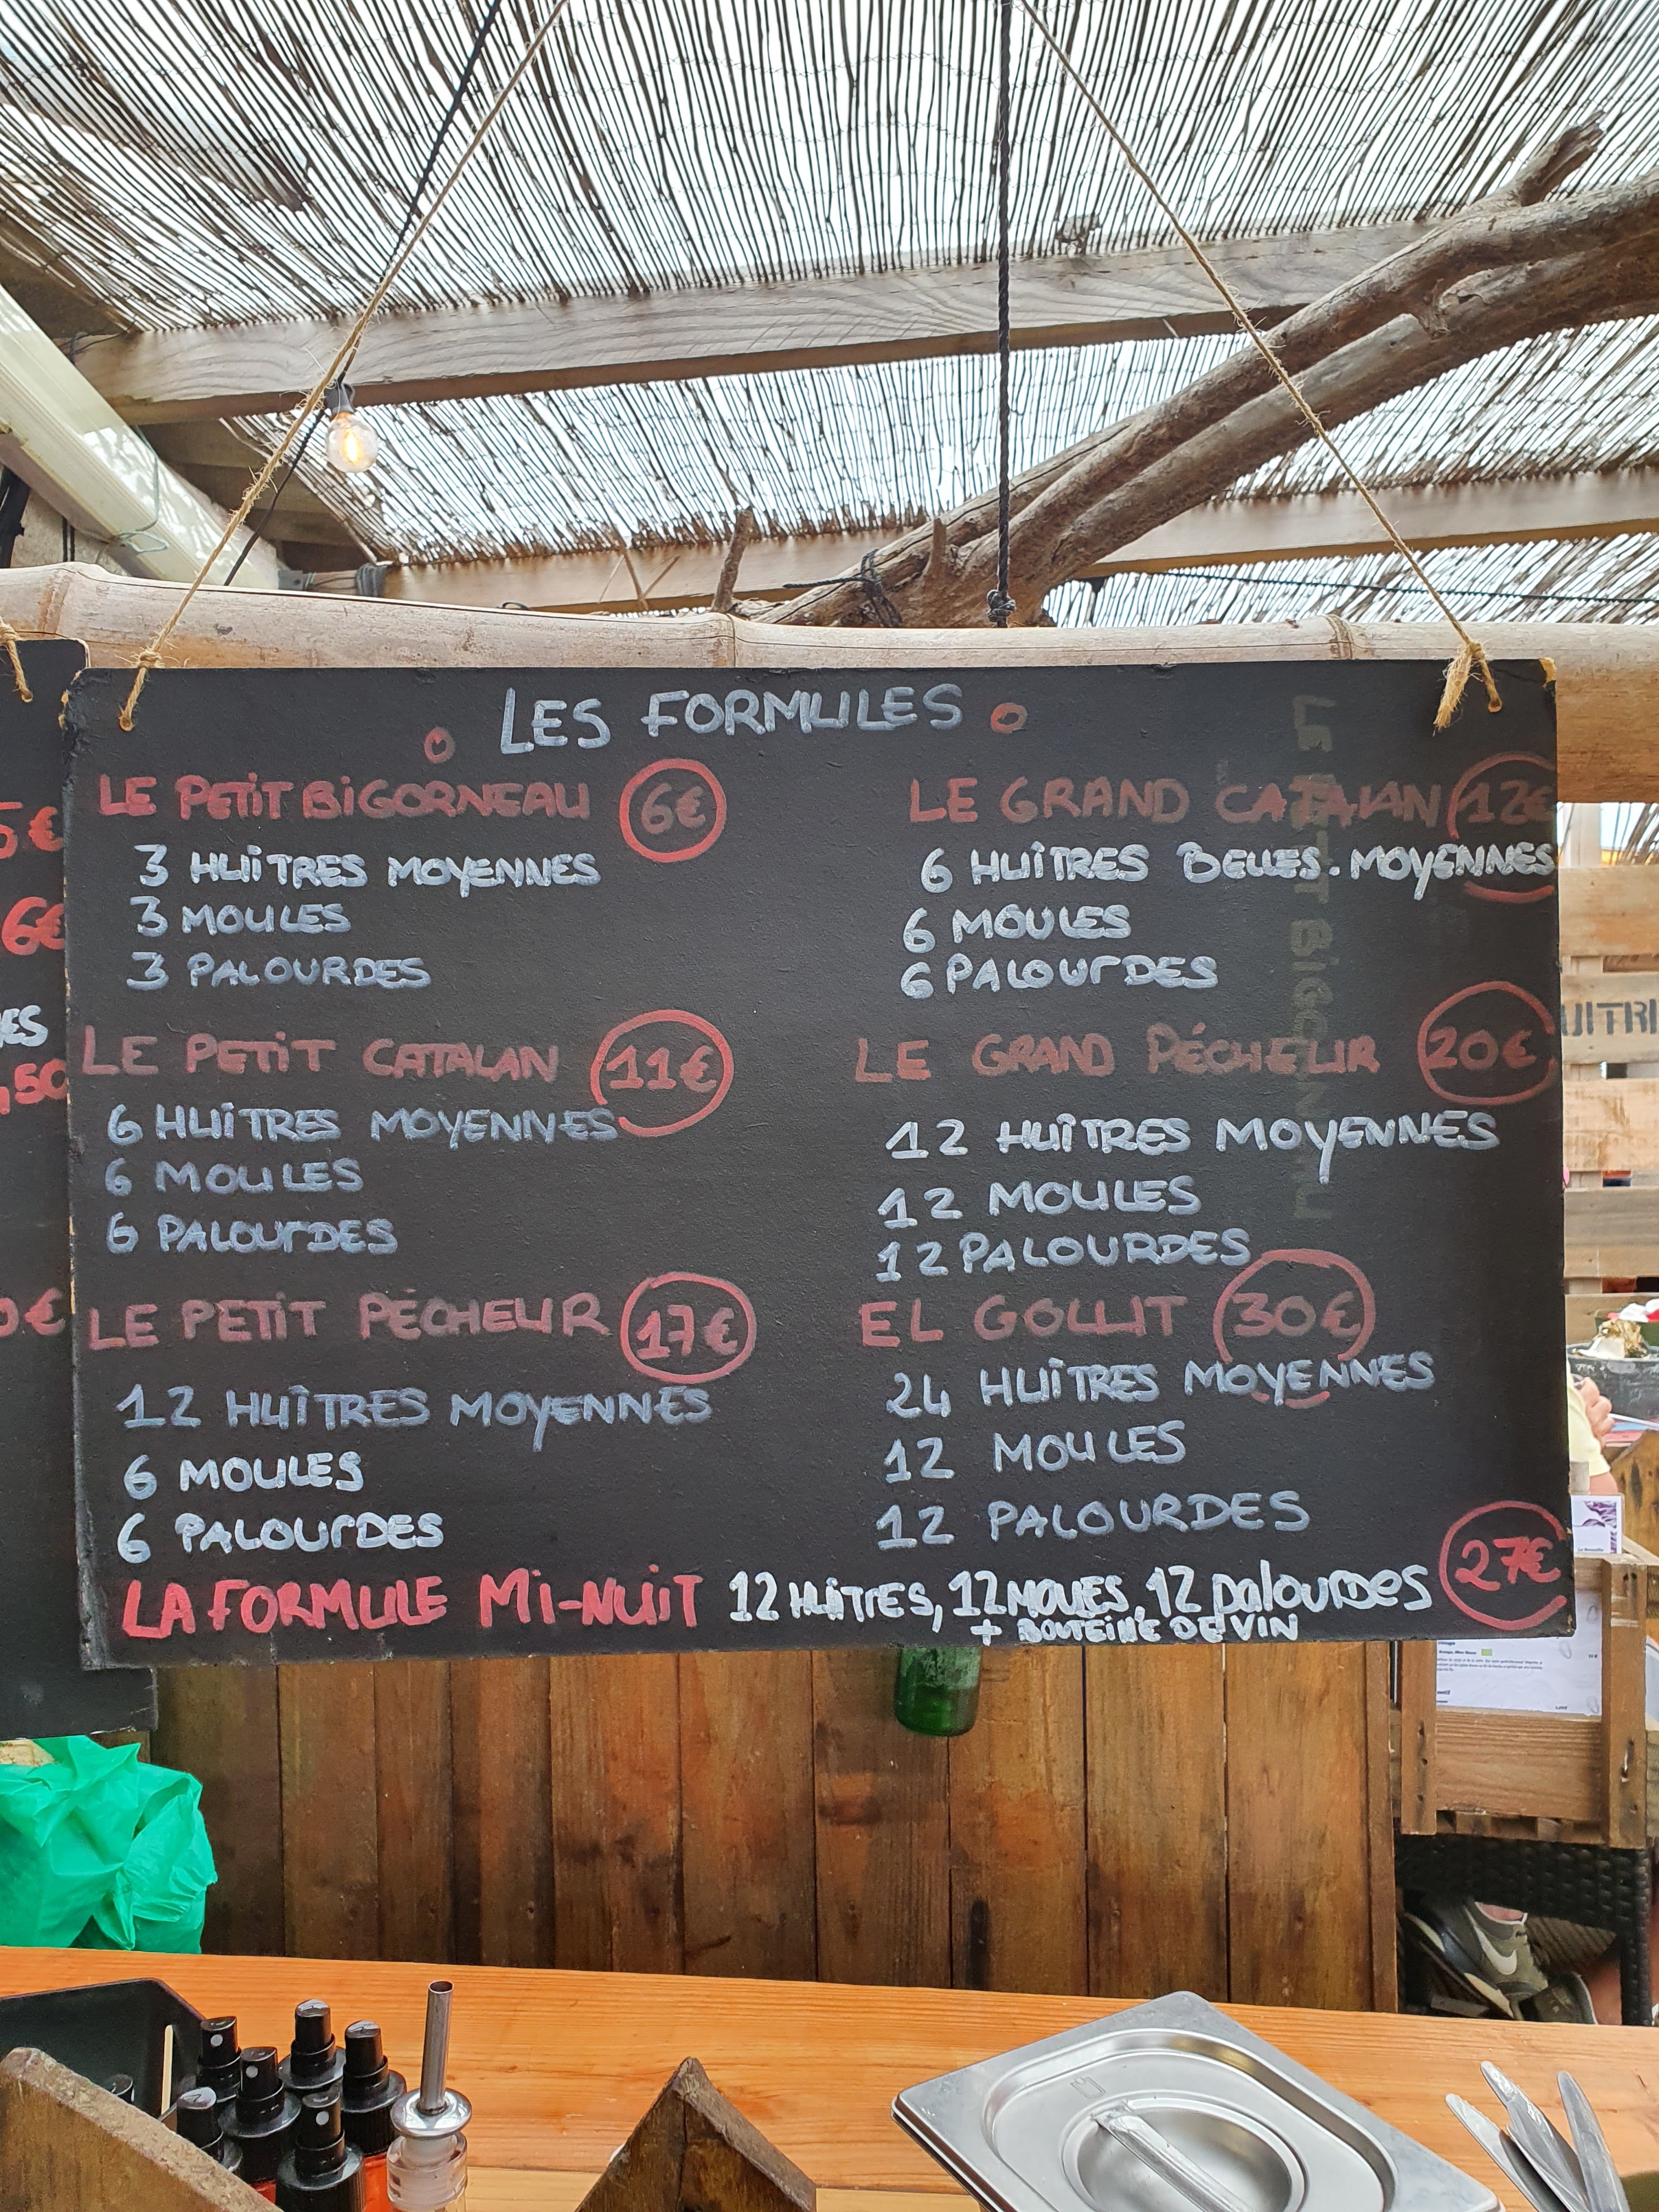 LES FORMULES
LE PETIT BIGORNEAU 6€
3 HUÎTRES MOYENNES
3 MOULES
3 PALOURDES
LE PETIT CATALAN 11€
6 HUÎTRES MOYENNES
6 MOULES
6 PALOURDES
LE PETIT PÉCHEUR 17€
12 HUÎTRES MOYENNES
6 MOULES
6 PALOURDES
LE GRAND CATALAN 12€
6 HUÎTRES BELLES-MOYENNES
6 MOULES
6 PALOURDES
LE GRAND PÉCHEUR 20€
12 HUÎTRES MOYENNES
12 MOULES
12 PALOURDES
EL GOLLIT 30€
24 HUÎTRES MOYENNES
12 MOULES
12 PALOURDES
LA FORMULE Mi-NUiT 12 HUîTRES, 12 MOULES, 12 palourdes 27€
+ BOUTEILLE DE VIN
LE PETIT BIGORNEAU
5€
6€
ES
,50
0€
UITRI